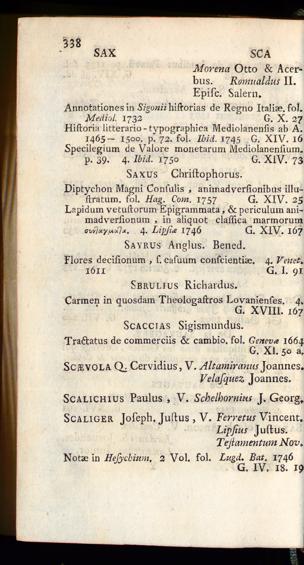 338
SAX SCA
Morena Otto & Acer-
bus. Romualdus II.
Episc. Salern.
Annotationes in Sigonii historias de Regno Italiæ. fol.
Mediol. 1732 G. X. 27
Historia litterario-typographica Mediolanensis ab A.
1465— 1500. p. 72. fol. Ibid. 1745 G. XIV. 16
Specilegium de Valore monetarum Mediolanensium.
p. 39. 4. Ibid. 1750 G. XIV. 73
SAXUS Christophorus.
Diptychon Magni Consulis, animadversionibus illu-
stratum. fol. Hag. Com. 1757 G. XIV. 25
Lapidum vetustorum Epigrammata, & periculum ani-
madversionum, in aliquot classica marmorum
4. Lipsiæ 1746 G. XIV. 167
SAYRUS Anglus. Bened.
Flores decisionum, s. casuum conscientiæ. 4. Venet.
1611 G. I. 91
SBRULIUS Richardus.
Carmen in quosdam Theologastros Lovanienses. 4.
G. XVIII. 167
SCACCIAS Sigismundus.
Tractatus de commerciis & cambio. fol. Genevæ 1664
G. XI. 50 a.
SCÆVOLA Q. Cervidius, V. Altamiranus Joannes.
Velasquez Joannes.
SCALICHIUS Paulus, V. Schelhornius J. Georg.
SCALIGER Joseph. Justus, V. Ferretus Vincent.
Lipsius Justus.
Testamentum Nov.
Notæ in Hesychium. 2 Vol. fol. Lugd. Bat. 1746
G. IV. 18. 19